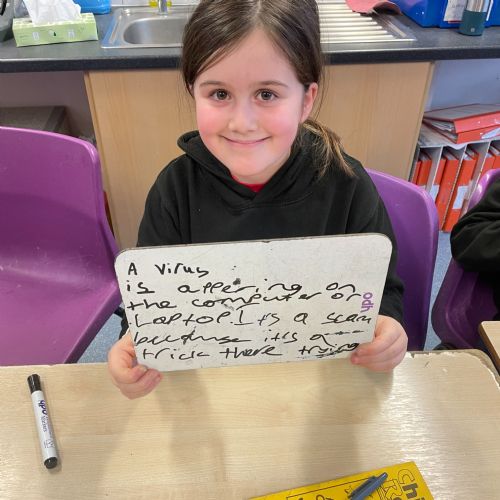 A Virus
is affering on
the computer or
Laptop. Its a scam
because it's a
trick there trying
odh
Ch